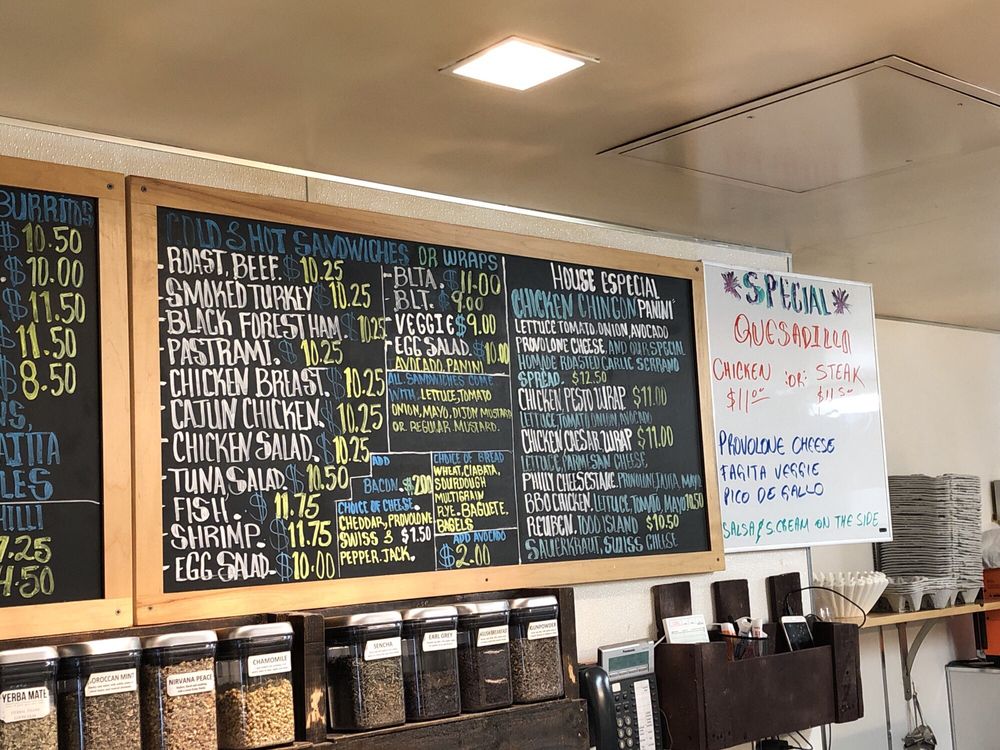 BURRITOS
$10.50
$10.00
$11.50
$11.50
$8.50
HILLI
7.25
4.50
COLD SHOT SANDWICHES OR WRAPS
-ROAST BEEF. $10.25
-SMOKED TURKEY $10.25
-BLACK FOREST HAM $10.25
-PASTRAMI. $10.25
-CHICKEN BREAST. $10.25
-CAJUN CHICKEN. $10.25
-CHICKEN SALAD. $10.25
-TUNA SALAD. $10.50
-FISH. $11.75
-SHRIMP. $11.75
-EGG SALAD- $10.00
-BLTA. $11.00
-BLT. $9.00
-VEGGIE $9.00
-EGG SALAD. $10.00
AVOCADO PANINI
ALL SANDWICHES COME
WITH. LETTUCE, TOMATO
ONION, MAYO, DIJON MUSTARD
OR REGULAR MUSTARD.
ADD
BACON. $2.00
CHOICE OF CHEESE.
CHEDDAR, PROVOLONE
SWISS & $1.50
PEPPER JACK.
CHOICE OF BREAD
WHEAT, CIABATA,
SOURDOUGH
MULTIGRAIN
RYE. BAGUETE.
BAGELS
ADD AVOCADO
$2.00
HOUSE ESPECIAL
CHICKEN CHINGON PANINI"
LETTUCE TOMATO, ONION, AVOCADO
PROVOLONE CHEESE, AND OUR SPECIAL
HOMADE ROASTED GARLIC SERRANO
SPREAD. $12.50
CHICKEN PESTO WRAP $11.00
LETTUCE, TOMATO ONION, AVOCADO
CHICKEN CAESAR WRAP $11.00
LETTUCE, PARMESAN CHEESE
PHILLY CHEESESTAKE. PROVOLONE, FAJITA, MAYO
BBQ CHICKEN, LETTUCE, TOMATO, MAYO 10.50
REUBEN. 1000 ISLAND $10.50
SAUERKRAUT, SWISS CHEESE
SPECIAL
QUESADILLA
CHICKEN "OR" STEAK
$11.00 $11.50
PROVOLONE CHEESE
FAGITA VEGGIE
PICO DE GALLO
SALSA & S.CREAM ON THE SIDE
YERBA MATE
MOROCCAN MINT
NIRVANA PEACE
CHAMOMILE
SENCHA
EARL GREY
GUNPOWDER
Panasonic